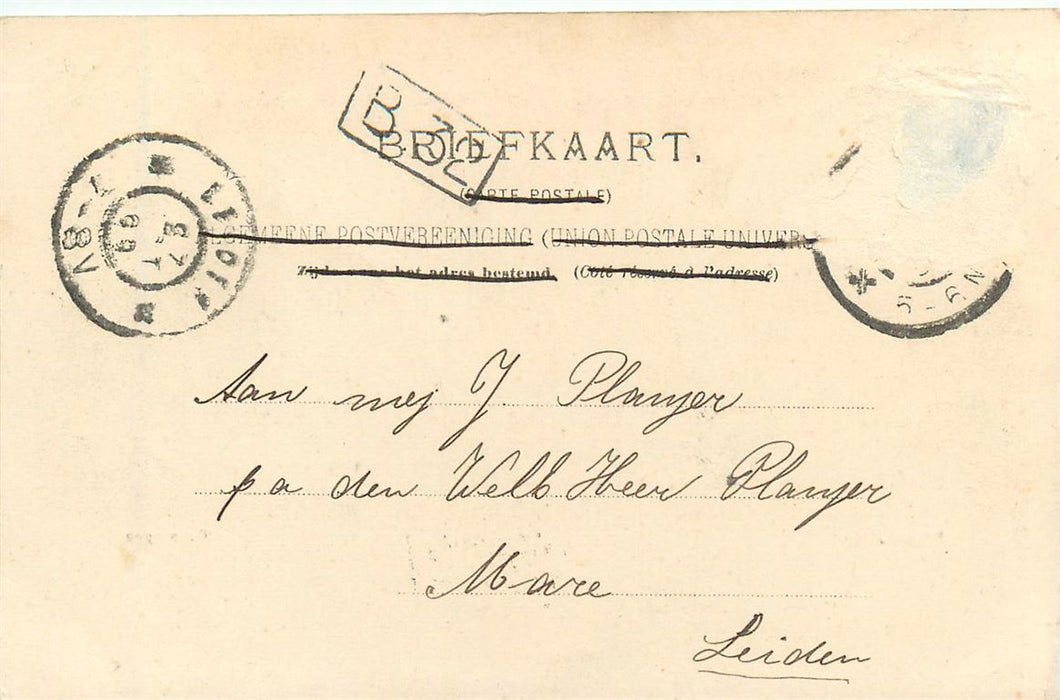 B 32
BRIEFKAART.
(CARTE POSTALE)
ALGEMEENE POSTVEREENIGING (UNION POSTALE UNIVERS
Zijde voor het adres bestemd. (Côté réservé à l'adresse)
5-6N
Aan mej J. Planjer
p a den Welb Heer Planjer
Mare
Leiden